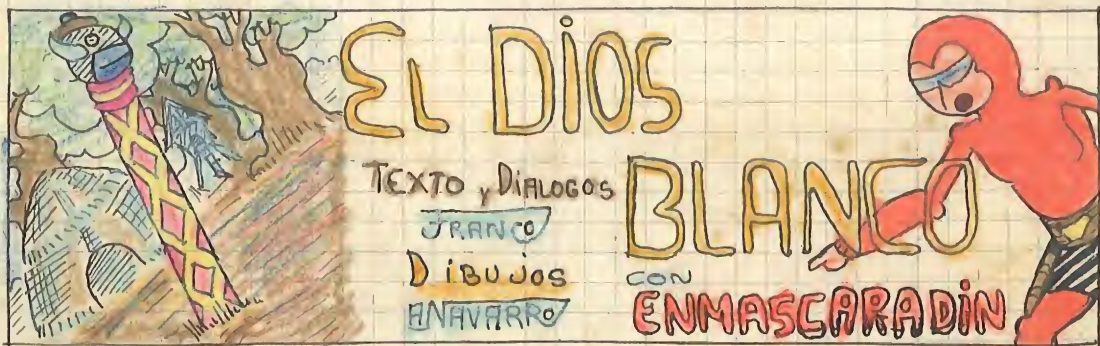 EL DIOS
BLANCO
TEXTO y DIALOGOS
JFRANCO
DIBUJOS
ANAVARRO
CON
ENMASCARADIN